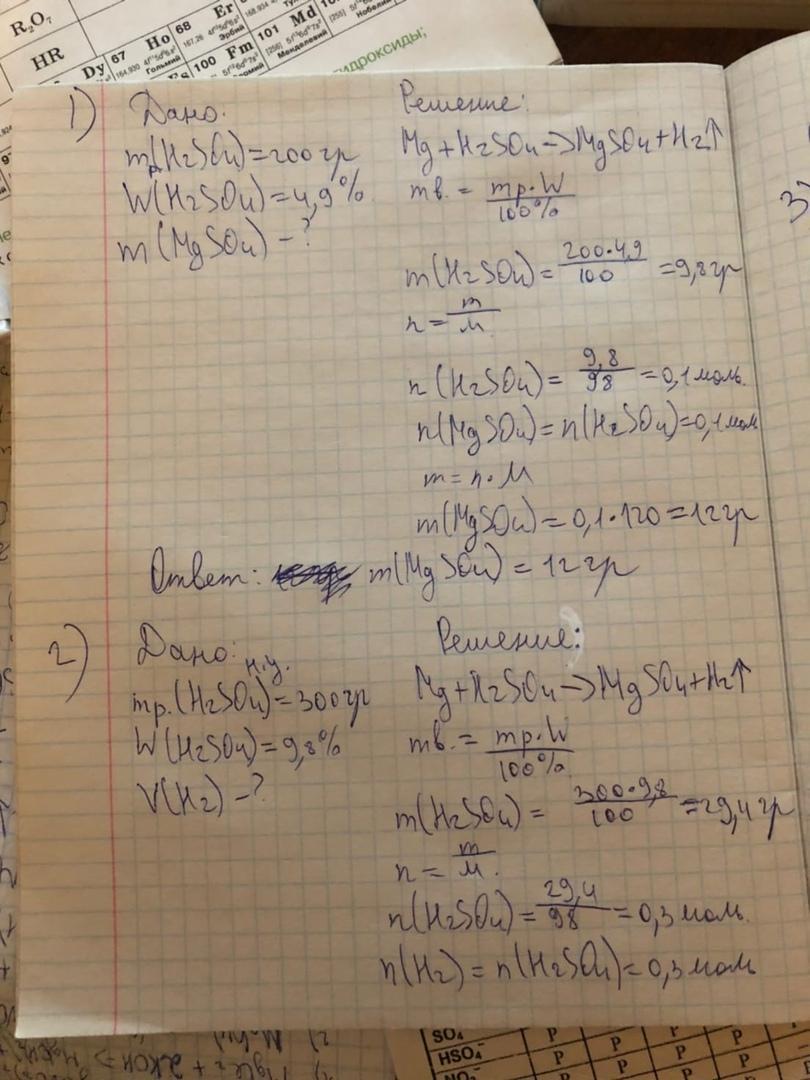 R₂O₇
HR
Dy 67 Ho 68 Er
164,930 4f¹¹5d⁰6s²
Гольмий
167,26 4f¹²5d⁰6s²
Эрбий
100 Fm 101 Md
Менделевий
Нобелий
идроксиды;
1) Дано:
mр(H₂SO₄)=200гр
W(H₂SO₄)=4,9%
m(MgSO₄)-?
Решение:
Mg+H₂SO₄->MgSO₄+H₂↑
mв.= mр.·W / 100%
m(H₂SO₄)= 200·4,9 / 100 =9,8гр
n= m / M
n(H₂SO₄)= 9,8 / 98 =0,1моль.
n(MgSO₄)=n(H₂SO₄)=0,1мол
m=n·M
m(MgSO₄)=0,1·120=12гр
Ответ: m(MgSO₄)=12гр
2) Дано:
н.у.
mр.(H₂SO₄)=300гр
W(H₂SO₄)=9,8%
V(H₂)-?
Решение:
Mg+H₂SO₄->MgSO₄+H₂↑
mв.= mр.·W / 100%
m(H₂SO₄)= 300·9,8 / 100 =29,4гр
n= m / M.
n(H₂SO₄)= 29,4 / 98 =0,3моль.
n(H₂)=n(H₂SO₄)=0,3моль
3)
SO₄ P P P
HSO₄⁻ P P P